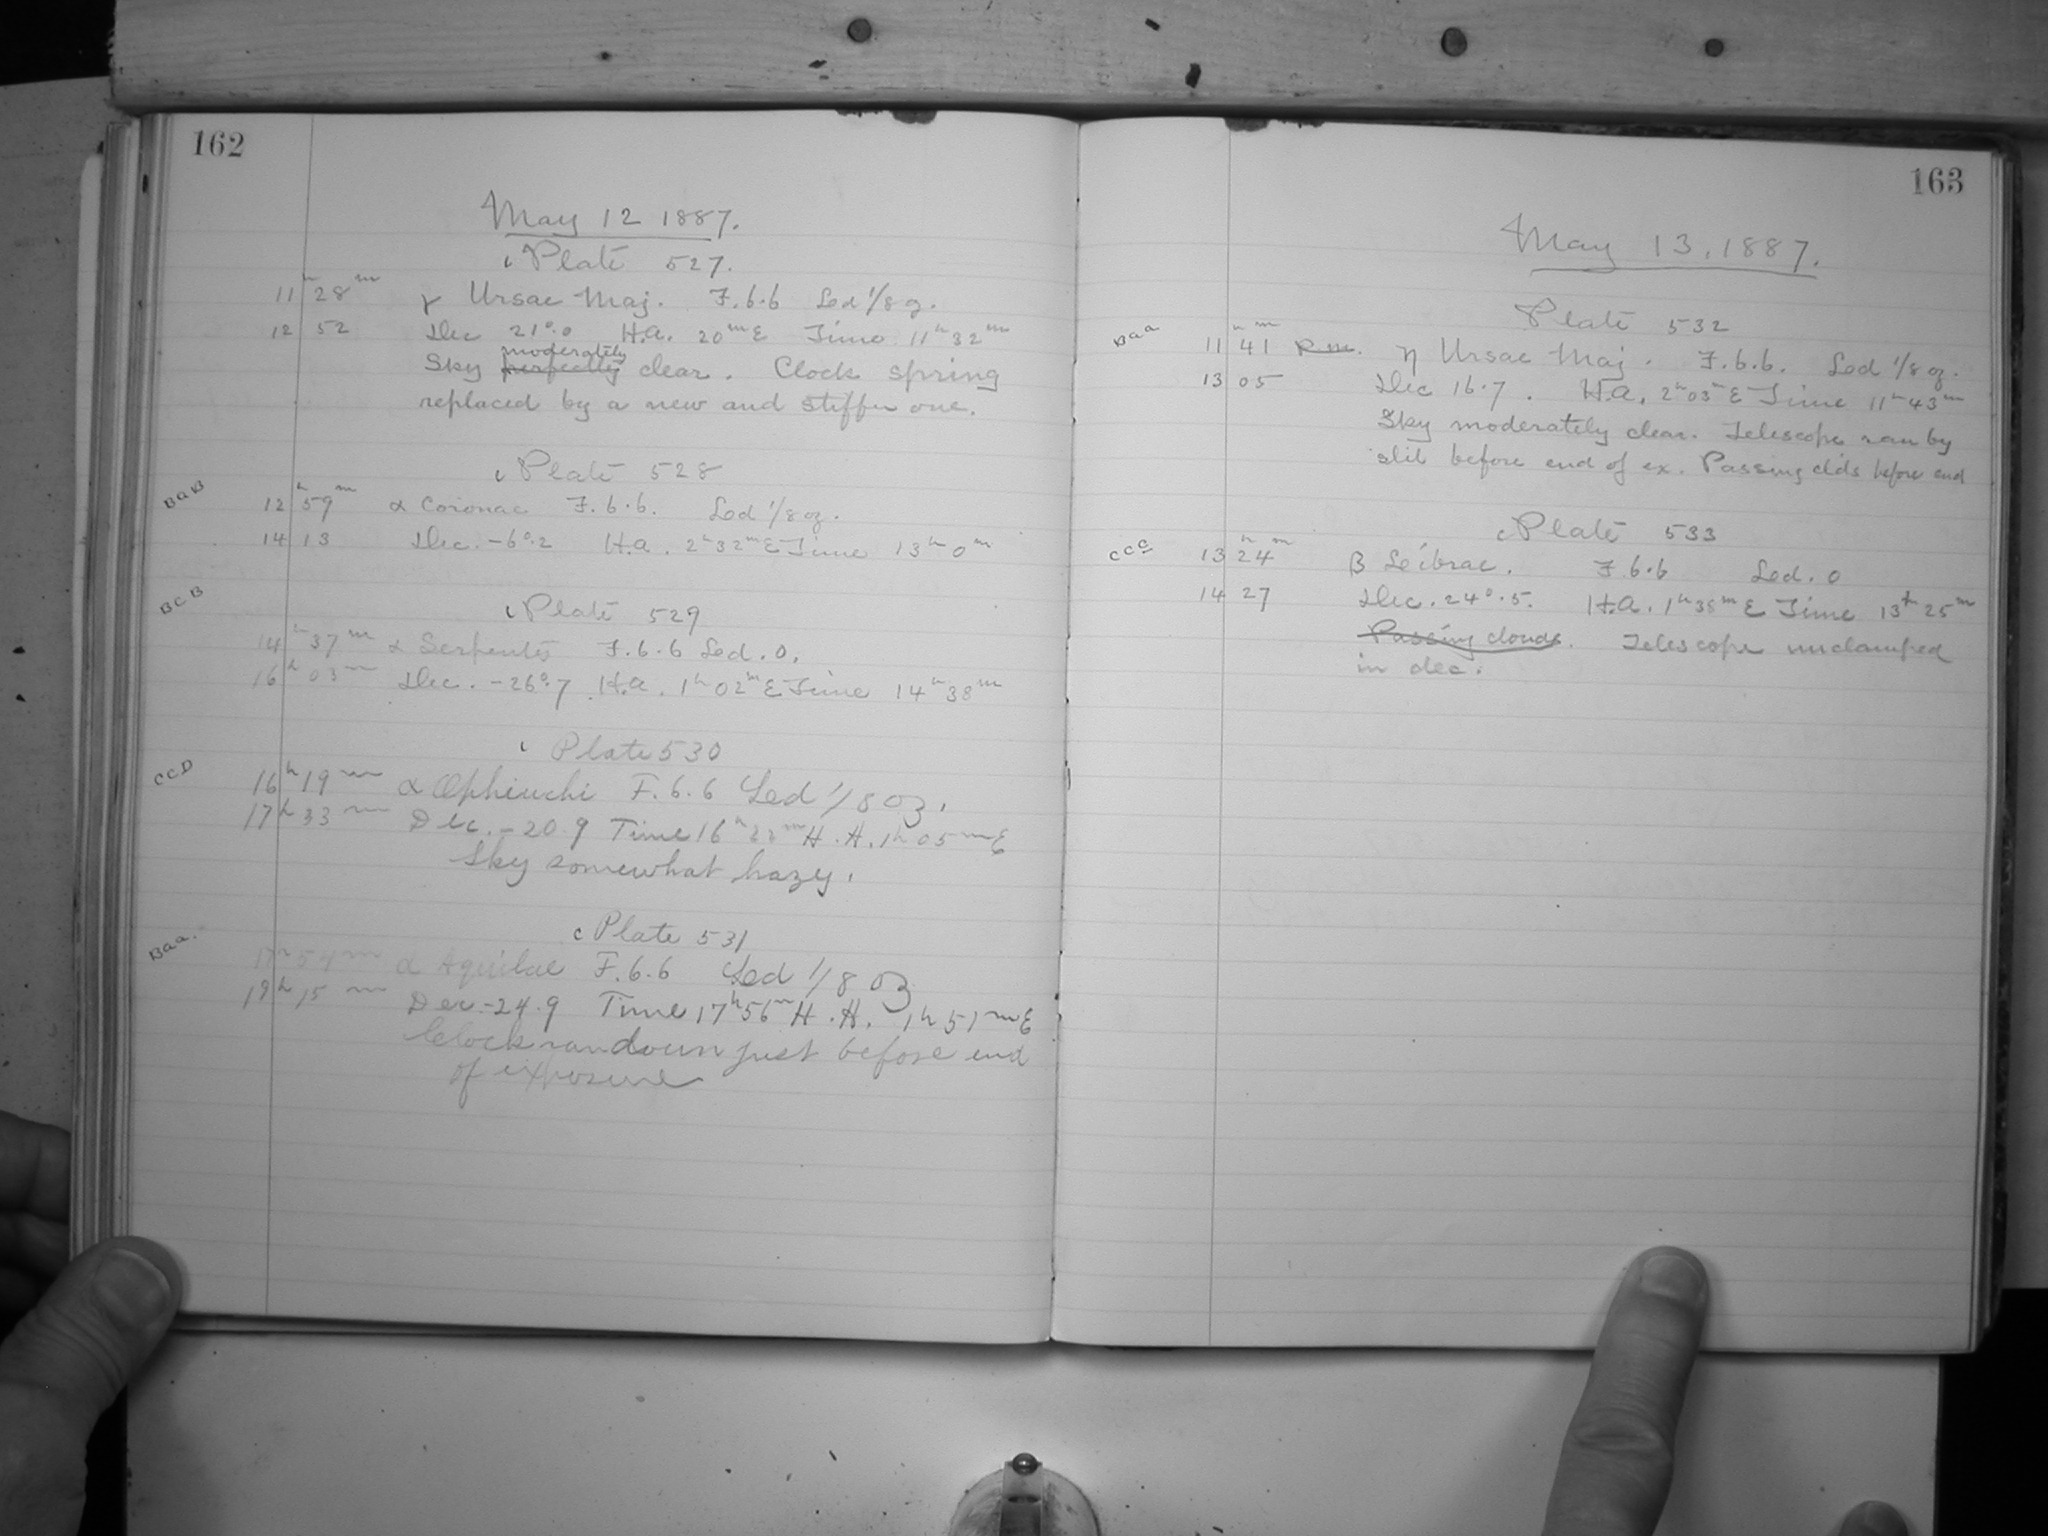 162
May 12 1887.
Plate 527.
11 h 28 m γ Ursae Maj. F.6.6 Led 1/8 oz.
12 52 Dec 21°.0 H.A. 20 m E Time 11 h 32 m
moderately
Sky perfectly clear. Clock spring
replaced by a new and stiffer one.
Plate 528
BaB
12 h 59 m α Coronae F.6.6. Led 1/8 oz.
14 13 Dec. -6°.2 H.a. 2 h 32 m E Time 13 h 0 m
BCB
Plate 529
14 h 37 m α Serpentis F.6.6 Led. 0.
16 h 03 m Dec. -26°.7 H.a. 1 h 02 m E Time 14 h 38 m
Plate 530
CCD
16 h 19 m α Ophiuchi F.6.6 Led 1/8 oz.
17 h 33 m Dec. -20.9 Time 16 h 22 m H.A. 1 h 05 m E
Sky somewhat hazy.
c Plate 531
Baa.
17 h 54 m α Aquilae F.6.6 Led 1/8 oz
19 h 15 m Dec. -24.9 Time 17 h 56 m H.A. 1 h 51 m E
Clock ran down just before end
of exposure
163
May 13, 1887.
Plate 532
Baa
11 h 41 m P.m. η Ursae Maj. F.6.6. Led 1/8 oz.
13 05 Dec 16.7. H.a. 2 h 03 m E Time 11 h 43 m
Sky moderately clear. Telescope ran by
slit before end of ex. Passing clds before end
c Plate 533
CCC
13 h 24 m β Leibrae. F.6.6 Led. 0
14 27 Dec. 24°.5. H.a. 1 h 38 m E Time 13 h 25 m
Passing clouds. Telescope unclamped
in dec.